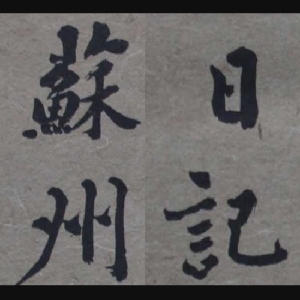 蘇州
日記